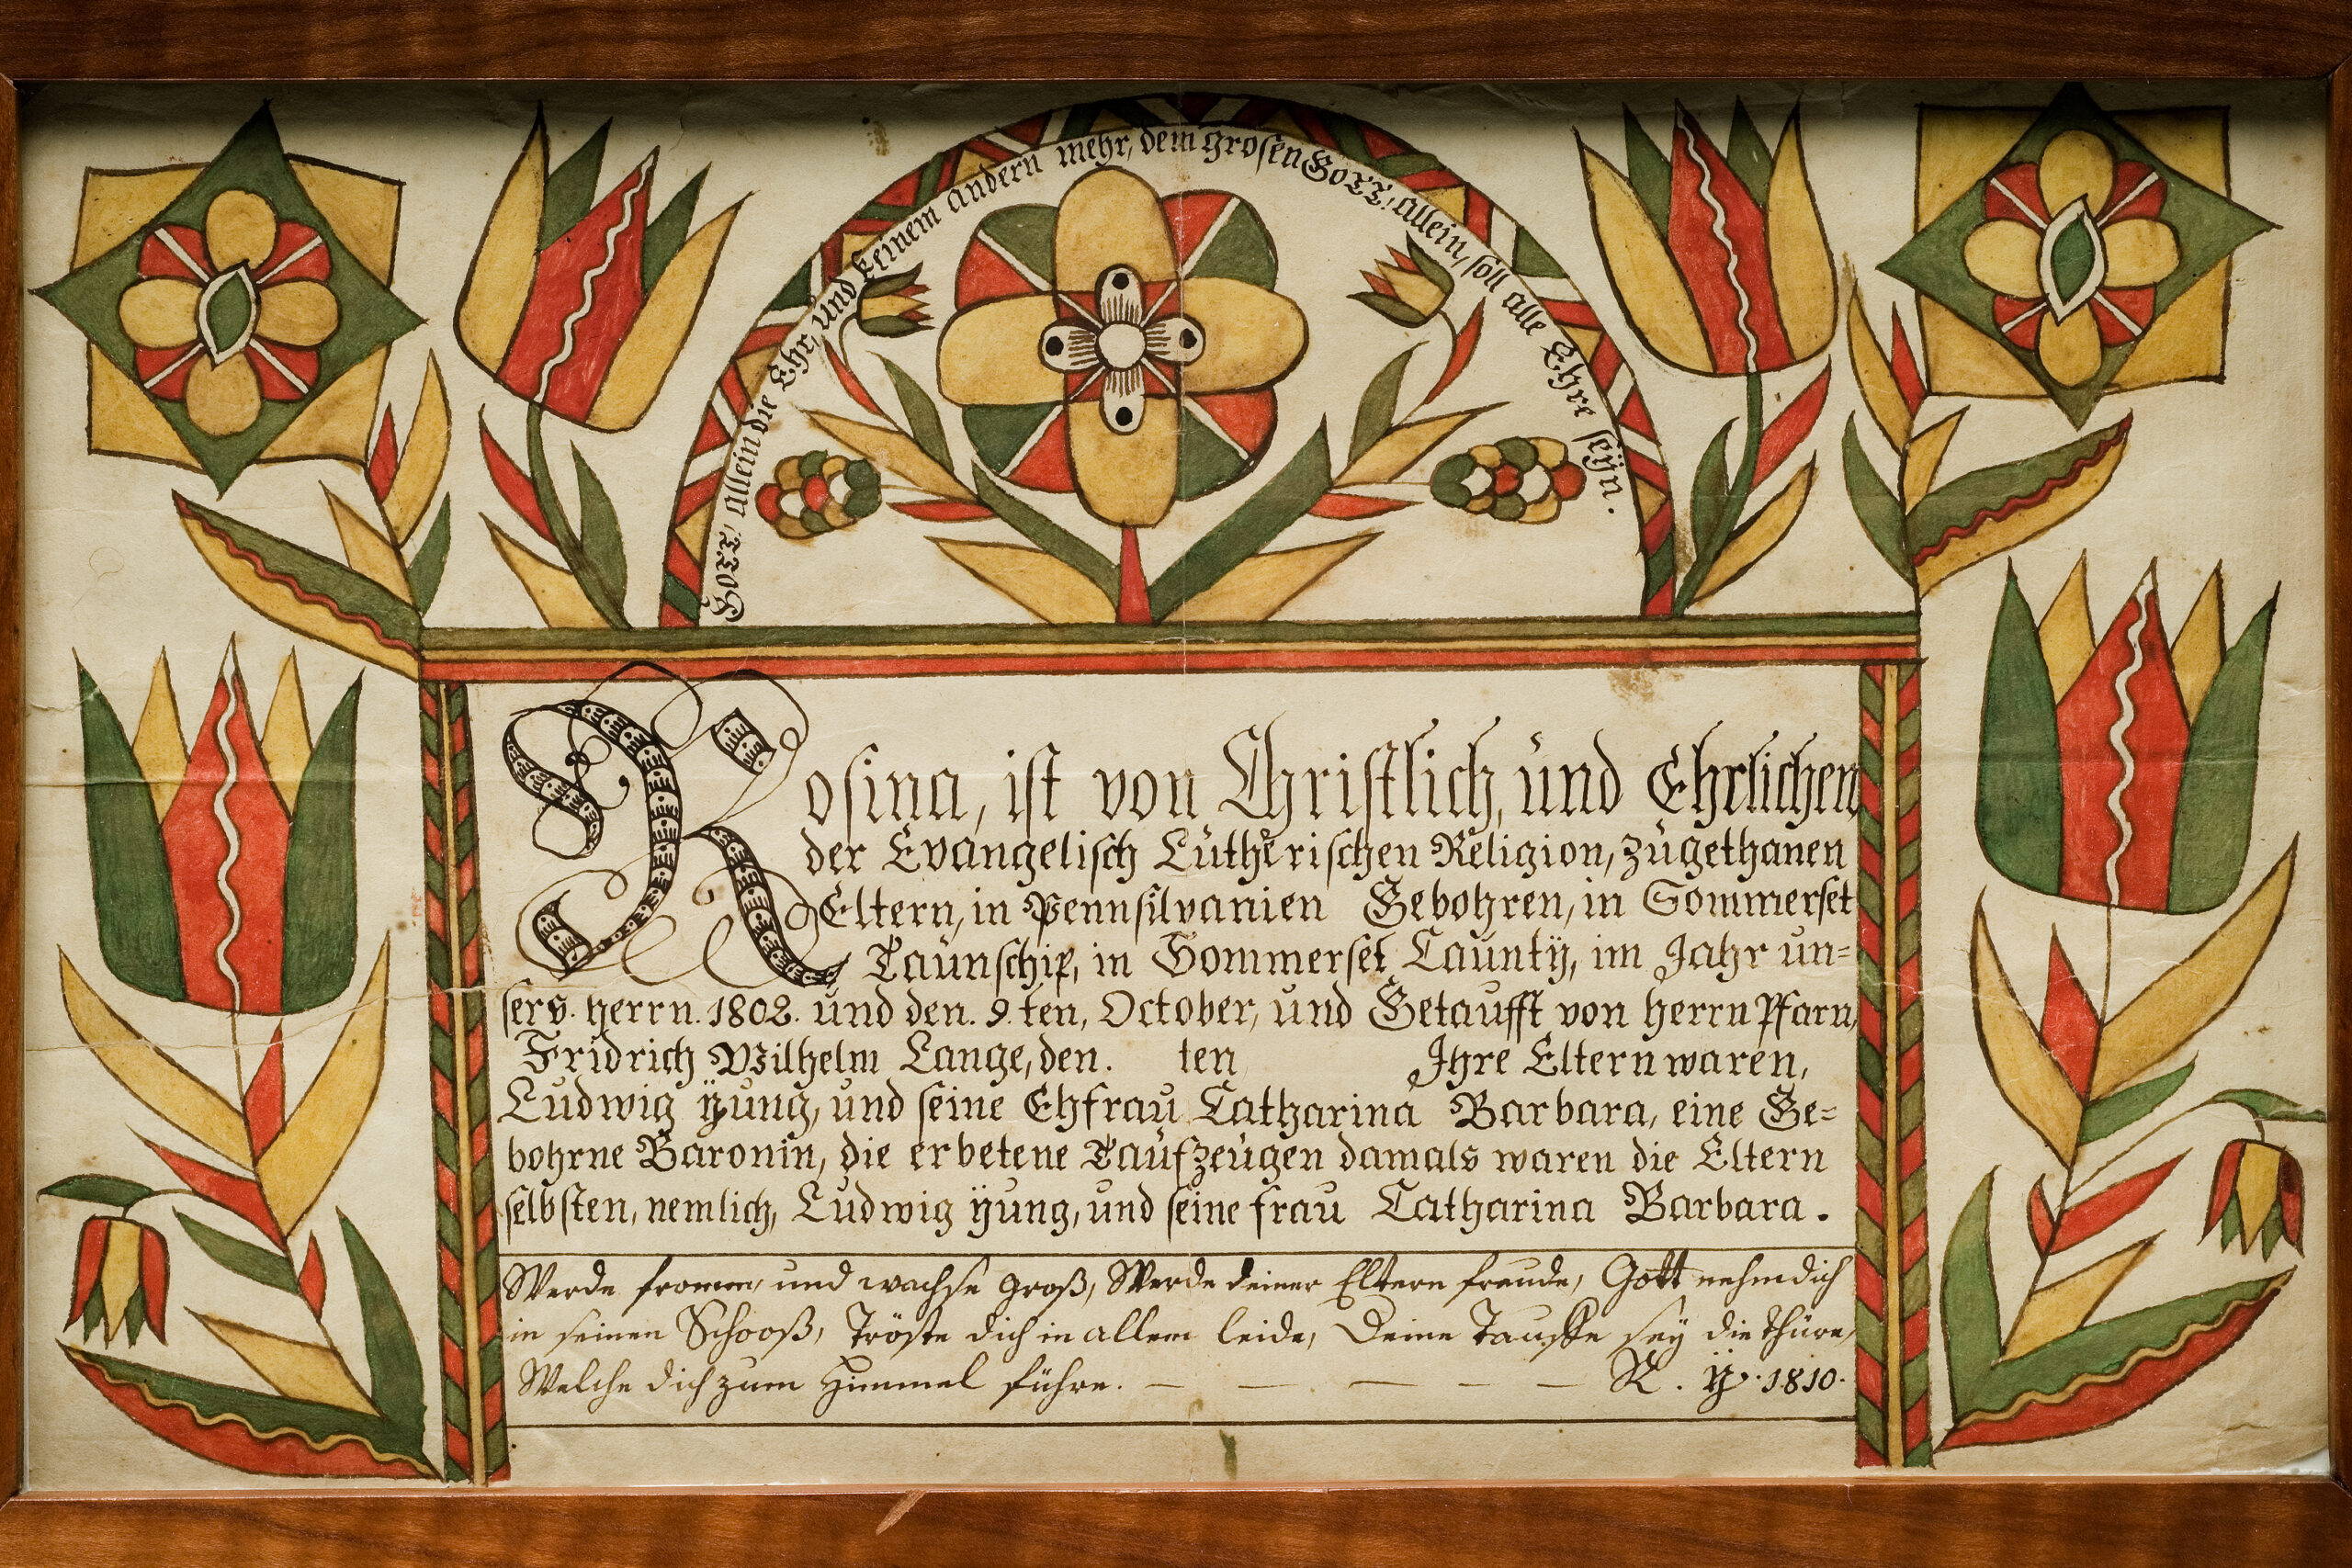 Gott, allein die Ehr, und keinem andern mehr, dem grosen Gott, allein, soll alle Ehre seÿn.
Rosina, ist von Christlich, und Ehrlichen
der Evangelisch Lutherischen Religion, zugethanen
Eltern, in Pennsilvanien Gebohren, in Sommerset
Taunschip, in Sommerset Caunty, im Jahr un=
sers. herrn. 1802. und den. 9. ten, October, und Getaufft von herrn Pfarn,
Fridrich Wilhelm Lange, den. ten Ihre Eltern waren,
Ludwig ÿung, und seine Ehfrau Catharina Barbara, eine Ge=
bohrne Baronin, die erbetene Taufzeugen damals waren die Eltern
selbsten, nemlich, Ludwig ÿung, und seine frau Catharina Barbara.
Werde fromm, und wachse groß, Werde deiner Eltern freude, Gott nehm dich
in seinen Schooß, Tröste dich in allem leide, Deine Tauffe seÿ die thüre,
Welche dich zum Himmel führe. — — — — — R. ÿ. 1810.